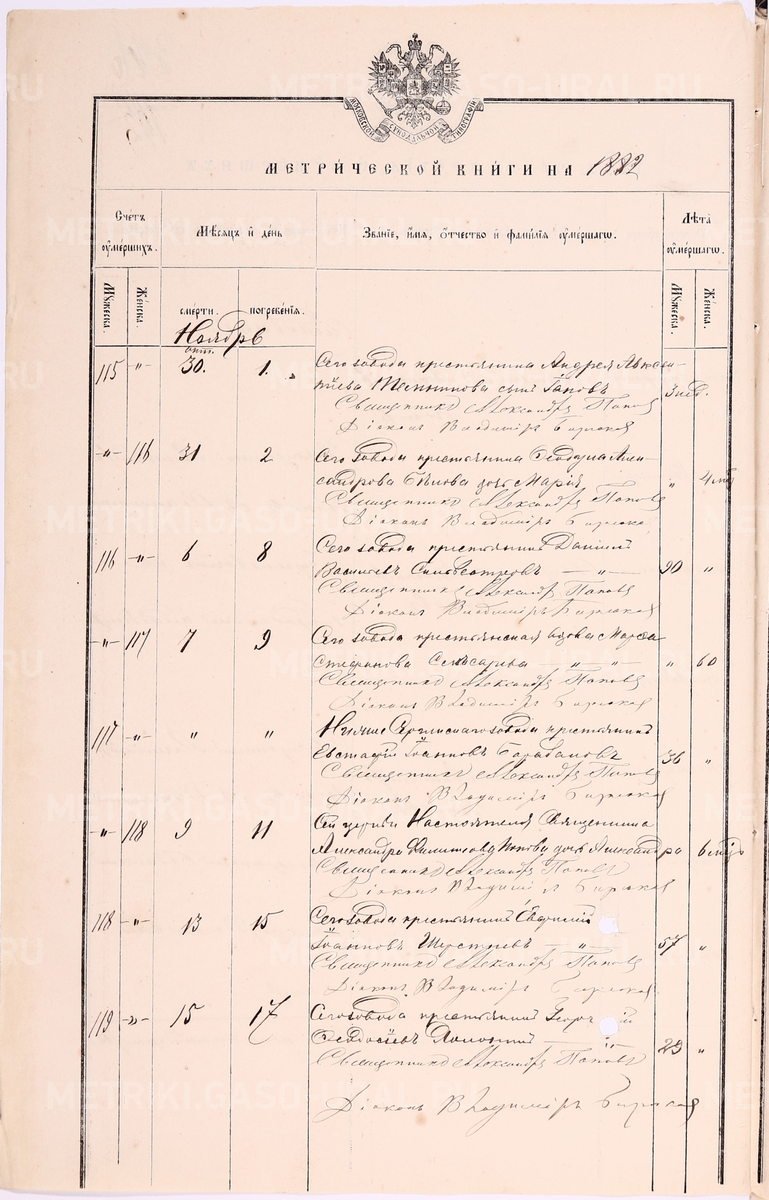 МЕТРИ́ЧЕСКОЙ КНИ́ГИ НА 1882
Сче́тъ ᲂу҆ме́ршихъ. Мѣ́сяцъ и҆ де́нь Зва́нїе, и҆́мя, ѻ҆́тчество и҆ фами́лїя ᲂу҆ме́ршагѡ. Лѣ́та ᲂу҆ме́ршагѡ.
Мꙋ́жеска. Же́нска. сме́рти. погребе́нїя. Мꙋ́жеска. Же́нска.
Ноябрь
115 " 30. 1. Сего завода крестьянина Андрея
сынъ Іаковъ 3 нед.
Священникъ Александръ Поповъ
Діаконъ Владиміръ Бирюковъ
" 116 31 2 Сего завода крестьянина Алек-
сандрова дочь Марія " 4 мѣс
Священникъ Александръ Поповъ
Діаконъ Владиміръ Бирюковъ
116 " 6 8 Сего завода крестьянинъ Даніилъ
Васильевъ " 90 "
Священникъ Александръ Поповъ
Діаконъ Владиміръ Бирюковъ
" 117 7 9 Сего завода крестьянская вдова Марѳа
Стефанова " " " 60
Священникъ Александръ Поповъ
Діаконъ Владиміръ Бирюковъ
117 " " " завода крестьянинъ
Евстафій Іоанновъ Барабановъ 36 "
Священникъ Александръ Поповъ
Діаконъ Владиміръ Бирюковъ
" 118 9 11 Сей церкви Настоятеля Священника
Александра Попова дочь Александра 6 мѣс
Священникъ Александръ Поповъ
Діаконъ Владиміръ Бирюковъ
118 " 13 15 Сего завода крестьянинъ
Іоанновъ Шерстневъ " 57 "
Священникъ Александръ Поповъ
Діаконъ Владиміръ Бирюковъ
119 " 15 17 Сего завода крестьянинъ
Ѳеодосіевъ " 29 "
Священникъ Александръ Поповъ
Діаконъ Владиміръ Бирюковъ